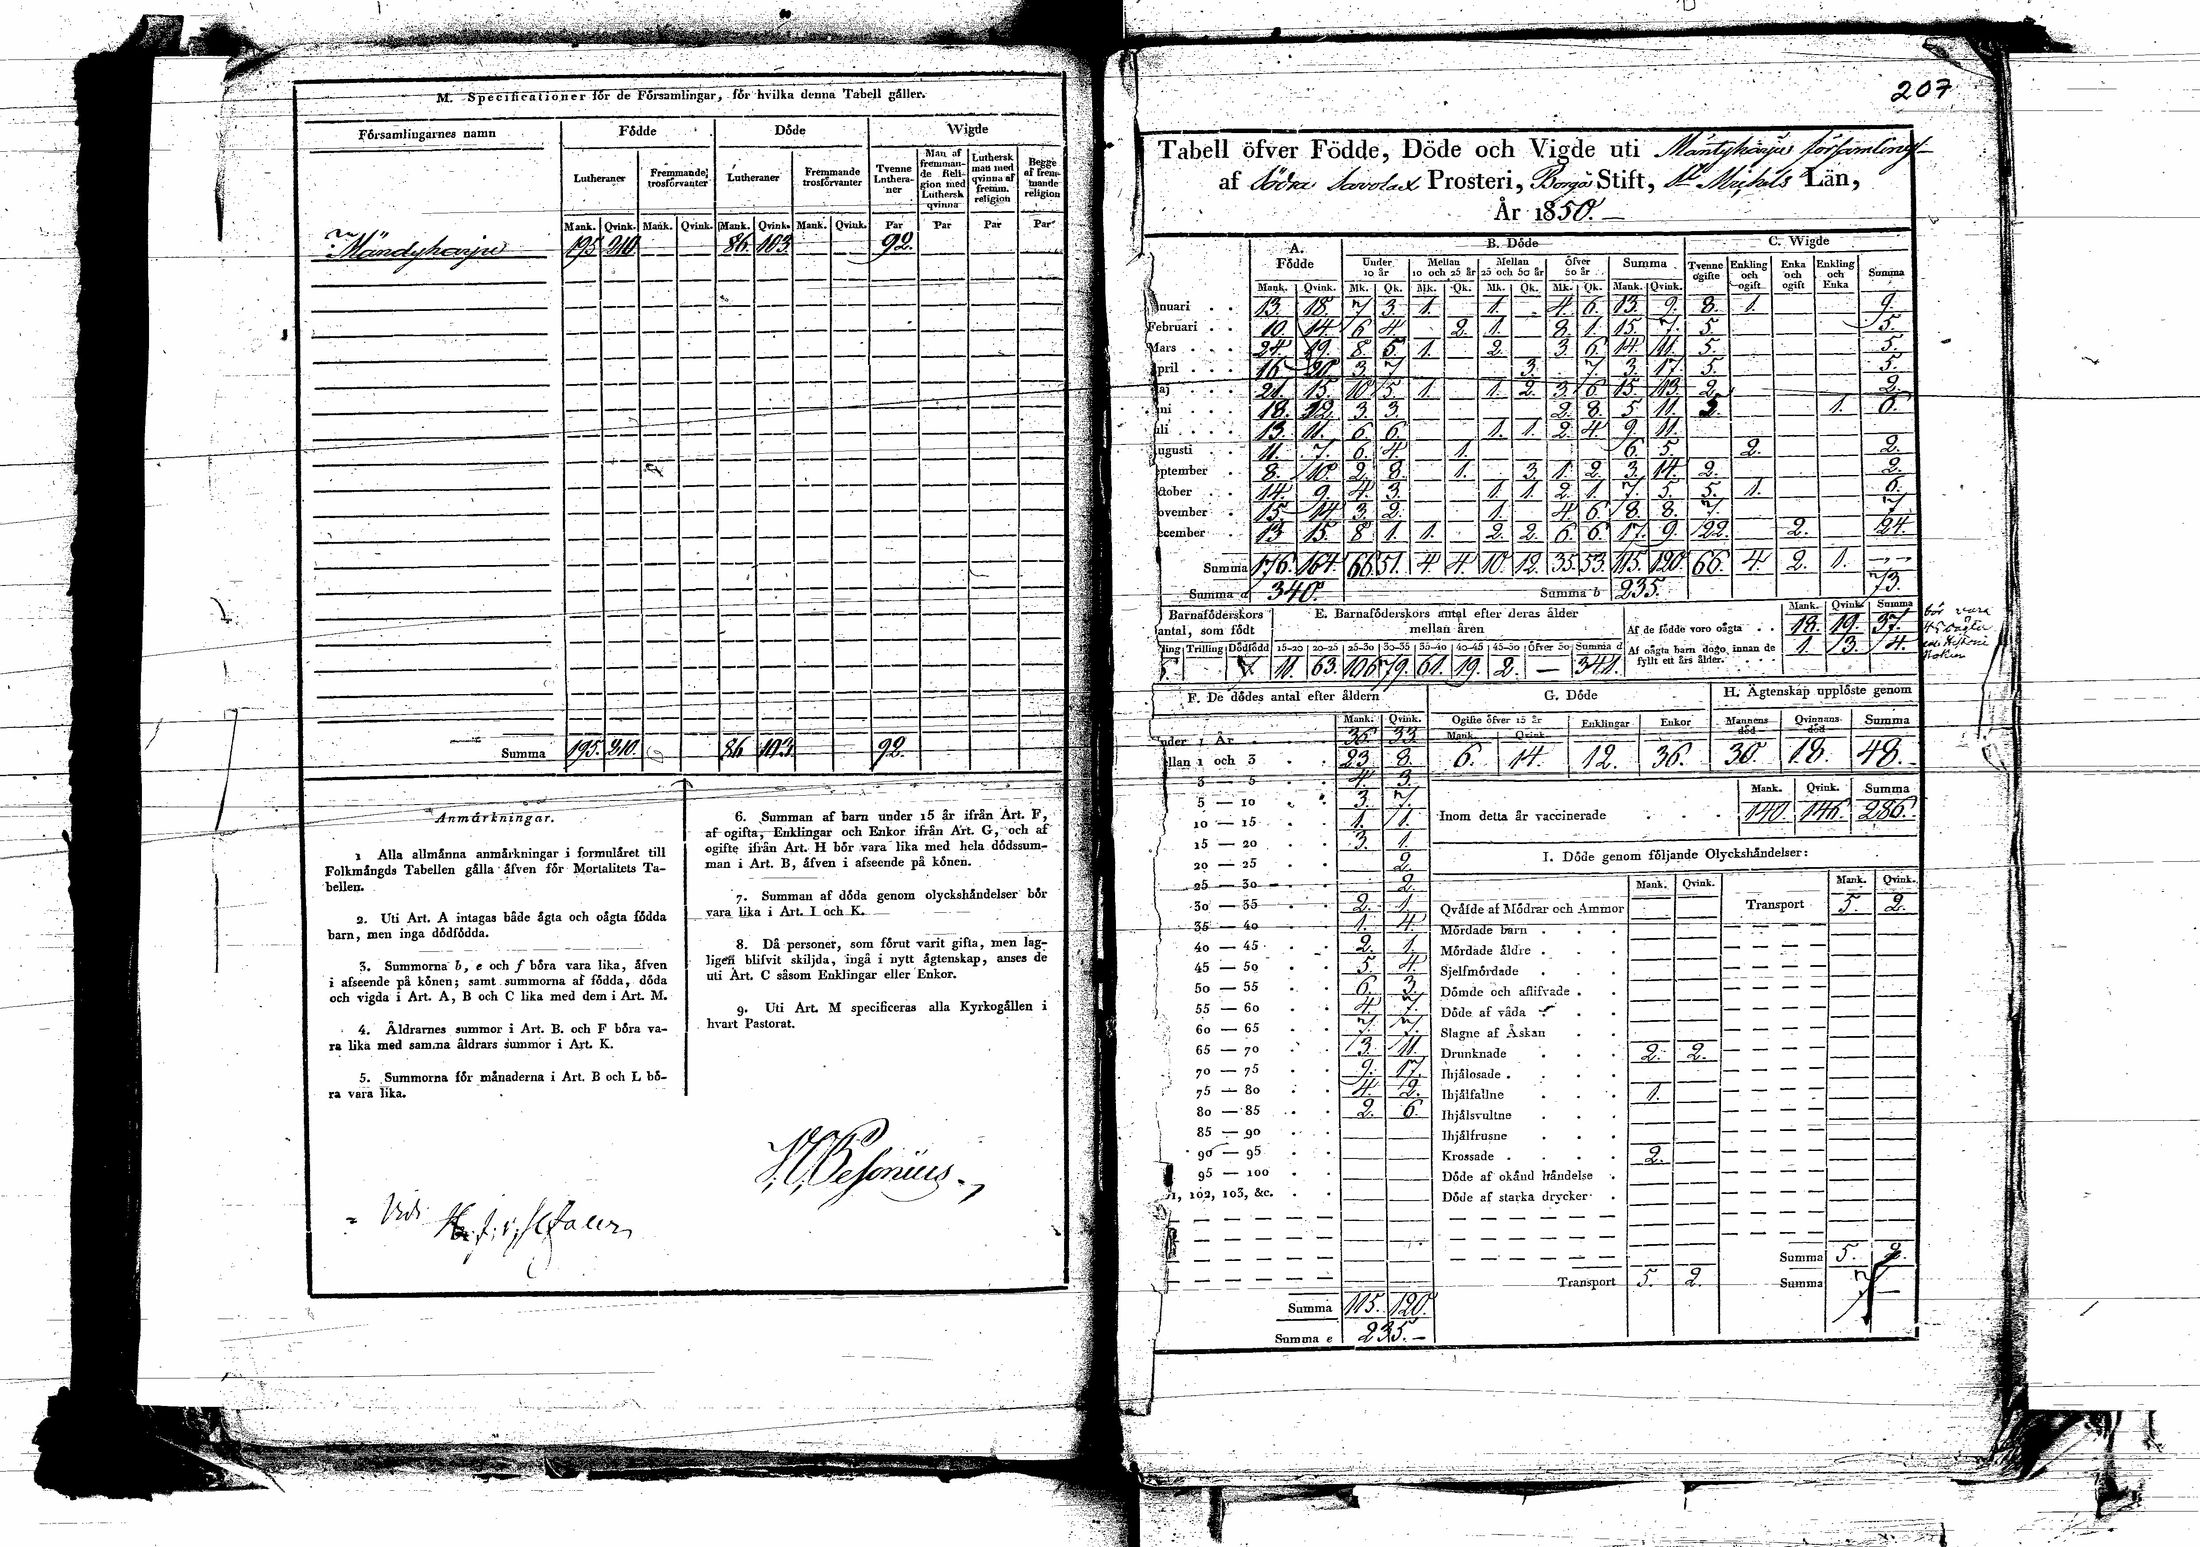 M. Specificationer för de Församlingar, för hvilka denna Tabell gäller.
Församlingarnes namn Födde Döde Wigde
Lutheraner Fremmande trosförvanter Lutheraner Fremmande trosförvanter Tvenne Lutheraner Man af fremmande Religion med Luthersk qvinna Luthersk man med qvinna af fremm. religion Begge af fremmande religion
Mank. Qvink. Mank. Qvink. Mank. Qvink. Mank. Qvink. Par Par Par Par
Mändyharju 195 210 86 103 92.
Summa 195. 210. 86 103 92.
Anmärkningar.
1 Alla allmänna anmärkningar i formuläret till
Folkmängds Tabellen gälla äfven för Mortalitets Ta-
bellen.
2. Uti Art. A intagas både ägta och oägta födda
barn, men inga dödfödda.
3. Summorna b, e och f böra vara lika, äfven
i afseende på könen; samt summorna af födda, döda
och vigda i Art. A, B och C lika med dem i Art. M.
4. Åldrarnes summor i Art. B. och F böra va-
ra lika med samma åldrars summor i Art. K.
5. Summorna för månaderna i Art. B och L bö-
ra vara lika.
6. Summan af barn under 15 år ifrån Art. F,
af ogifta, Enklingar och Enkor ifrån Art. G, och af
ogifte ifrån Art. H bör vara lika med hela dödssum-
man i Art. B, äfven i afseende på könen.
7. Summan af döda genom olyckshändelser bör
vara lika i Art. I och K.
8. Då personer, som förut varit gifta, men lag-
ligen blifvit skiljda, ingå i nytt ägtenskap, anses de
uti Art. C såsom Enklingar eller Enkor.
9. Uti Art. M specificeras alla Kyrkogällen i
hvart Pastorat.
Vidi
207
Tabell öfver Födde, Döde och Vigde uti Mäntyharju församling
af Södra Savolax Prosteri, Borgå Stift, St Michels Län,
År 1850.
A. Födde B. Döde C. Wigde
Under 10 år Mellan 10 och 25 år Mellan 25 och 50 år Öfver 50 år Summa Tvenne ogifte Enkling och ogift Enka och ogift Enkling och Enka Summa
Mank. Qvink. Mk. Qk. Mk. Qk. Mk. Qk. Mk. Qk. Mank. Qvink.
nuari 13. 18. 7 3. 1. 1. 4 6. 13. 9. 8. 1. 9.
Februari 10. 14. 6 4. 2. 1. 8. 1. 15. 7. 5. 5.
Mars 24. 19. 8. 5. 1. 2. 3. 6. 14. 11. 5. 5.
pril 16 20 3. 7 3. 7. 3. 17. 5. 5.
aj 21. 15. 10 5. 1. 1. 2. 3. 6. 15. 13. 2. 2.
ni 18. 12. 3. 3. 2. 8. 5. 11. 1. 6.
uli 13. 11. 6. 6. 1. 1. 2. 4. 9. 11.
ugusti 11. 7. 6. 4. 1. 6. 5. 2. 2.
ptember 8. 10. 2. 8. 1. 3. 1. 2. 3. 14. 2. 2.
ctober 14. 9. 4. 3. 1. 1. 2. 1. 7. 5. 5. 1. 6.
ovember 15. 14 3. 2. 1. 4. 6. 8. 8. 7 7
ecember 13. 15. 8. 1. 1. 2. 2. 6. 6. 17. 9. 22. 2. 24.
Summa 176. 164. 66. 51. 4. 4. 10. 12. 35. 53. 115. 120. 66. 4. 2. 1.
Summa a 340. Summa b 235. 73.
Barnaföderskors antal, som födt
ling Trilling Dödfödd
E. Barnaföderskors antal efter deras ålder
mellan åren
15-20 20-25 25-30 30-35 35-40 40-45 45-50 Öfver 50 Summa d
11. 63. 106 79. 61. 19. 2. — 341.
Mank. Qvink. Summa
Af de födde voro oägta 18. 19. 37.
Af oägta barn dogo innan de fyllt ett års ålder. 1. 3. 4.
bör vara
F. De dödes antal efter åldern
Mank. Qvink.
nder 1 År 35 33
llan 1 och 3 23. 8.
3 — 5 4. 3.
5 — 10 3. 7.
10 — 15 1. 1.
15 — 20 3. 1.
20 — 25 2.
25 — 30 2.
30 — 35 2. 1.
35 — 40 1. 4.
40 — 45 2. 1.
45 — 50 5. 4.
50 — 55 6. 3.
55 — 60 4. 7.
60 — 65 7. 7.
65 — 70 3. 11.
70 — 75 9. 17.
75 — 80 4. 2.
80 — 85 2. 6.
85 — 90
90 — 95
95 — 100
1, 102, 103, &c.
Summa 115. 120.
Summa e 235.
G. Döde
Ogifte öfver 15 år Enklingar Enkor
Mank. Qvink
6. 14. 12. 36.
H. Ägtenskap upplöste genom
Mannens död Qvinnans död Summa
30. 18. 48.
Mank. Qvink. Summa
Inom detta år vaccinerade 140. 146. 286.
I. Döde genom följande Olyckshändelser:
Mank. Qvink. Mank. Qvink.
Qväfde af Mödrar och Ammor Transport 5. 2.
Mördade barn
Mördade äldre
Sjelfmördade
Dömde och aflifvade
Döde af våda
Slagne af Åskan
Drunknade 2. 2.
Ihjälosade
Ihjälfallne 1.
Ihjälsvultne
Ihjälfrusne
Krossade 2.
Döde af okänd händelse
Döde af starka drycker
Summa 5. 2.
Transport 5. 2. Summa 7